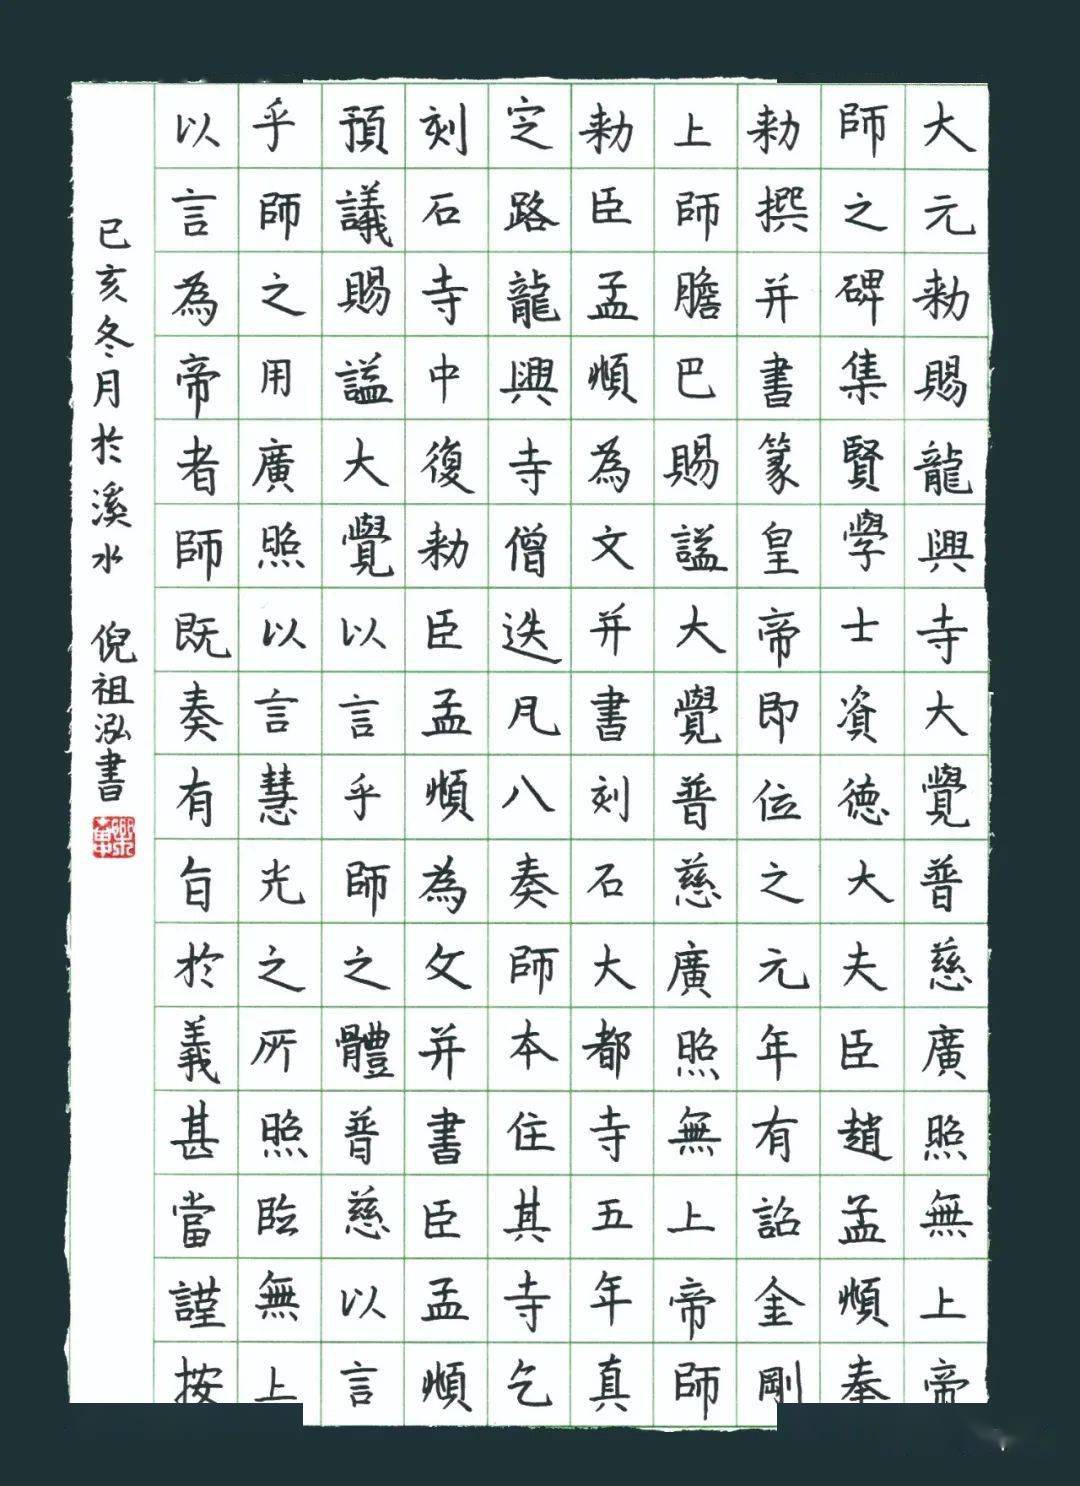 大元勅賜龍興寺大覺普慈廣照無上帝
師之碑集賢學士資德大夫臣趙孟頫奉
勅撰并書篆皇帝即位之元年有詔金剛
上師膽巴賜謚大覺普慈廣照無上帝師
勅臣孟頫為文并書刻石大都寺五年真
定路龍興寺僧迭凡八奏師本住其寺乞
刻石寺中復勅臣孟頫為文并書臣孟頫
預議賜謚大覺以言乎師之體普慈以言
乎師之用廣照以言慧光之所照臨無上
以言為帝者師既奏有旨於義甚當謹按
己亥冬月於溪水 倪祖泓書